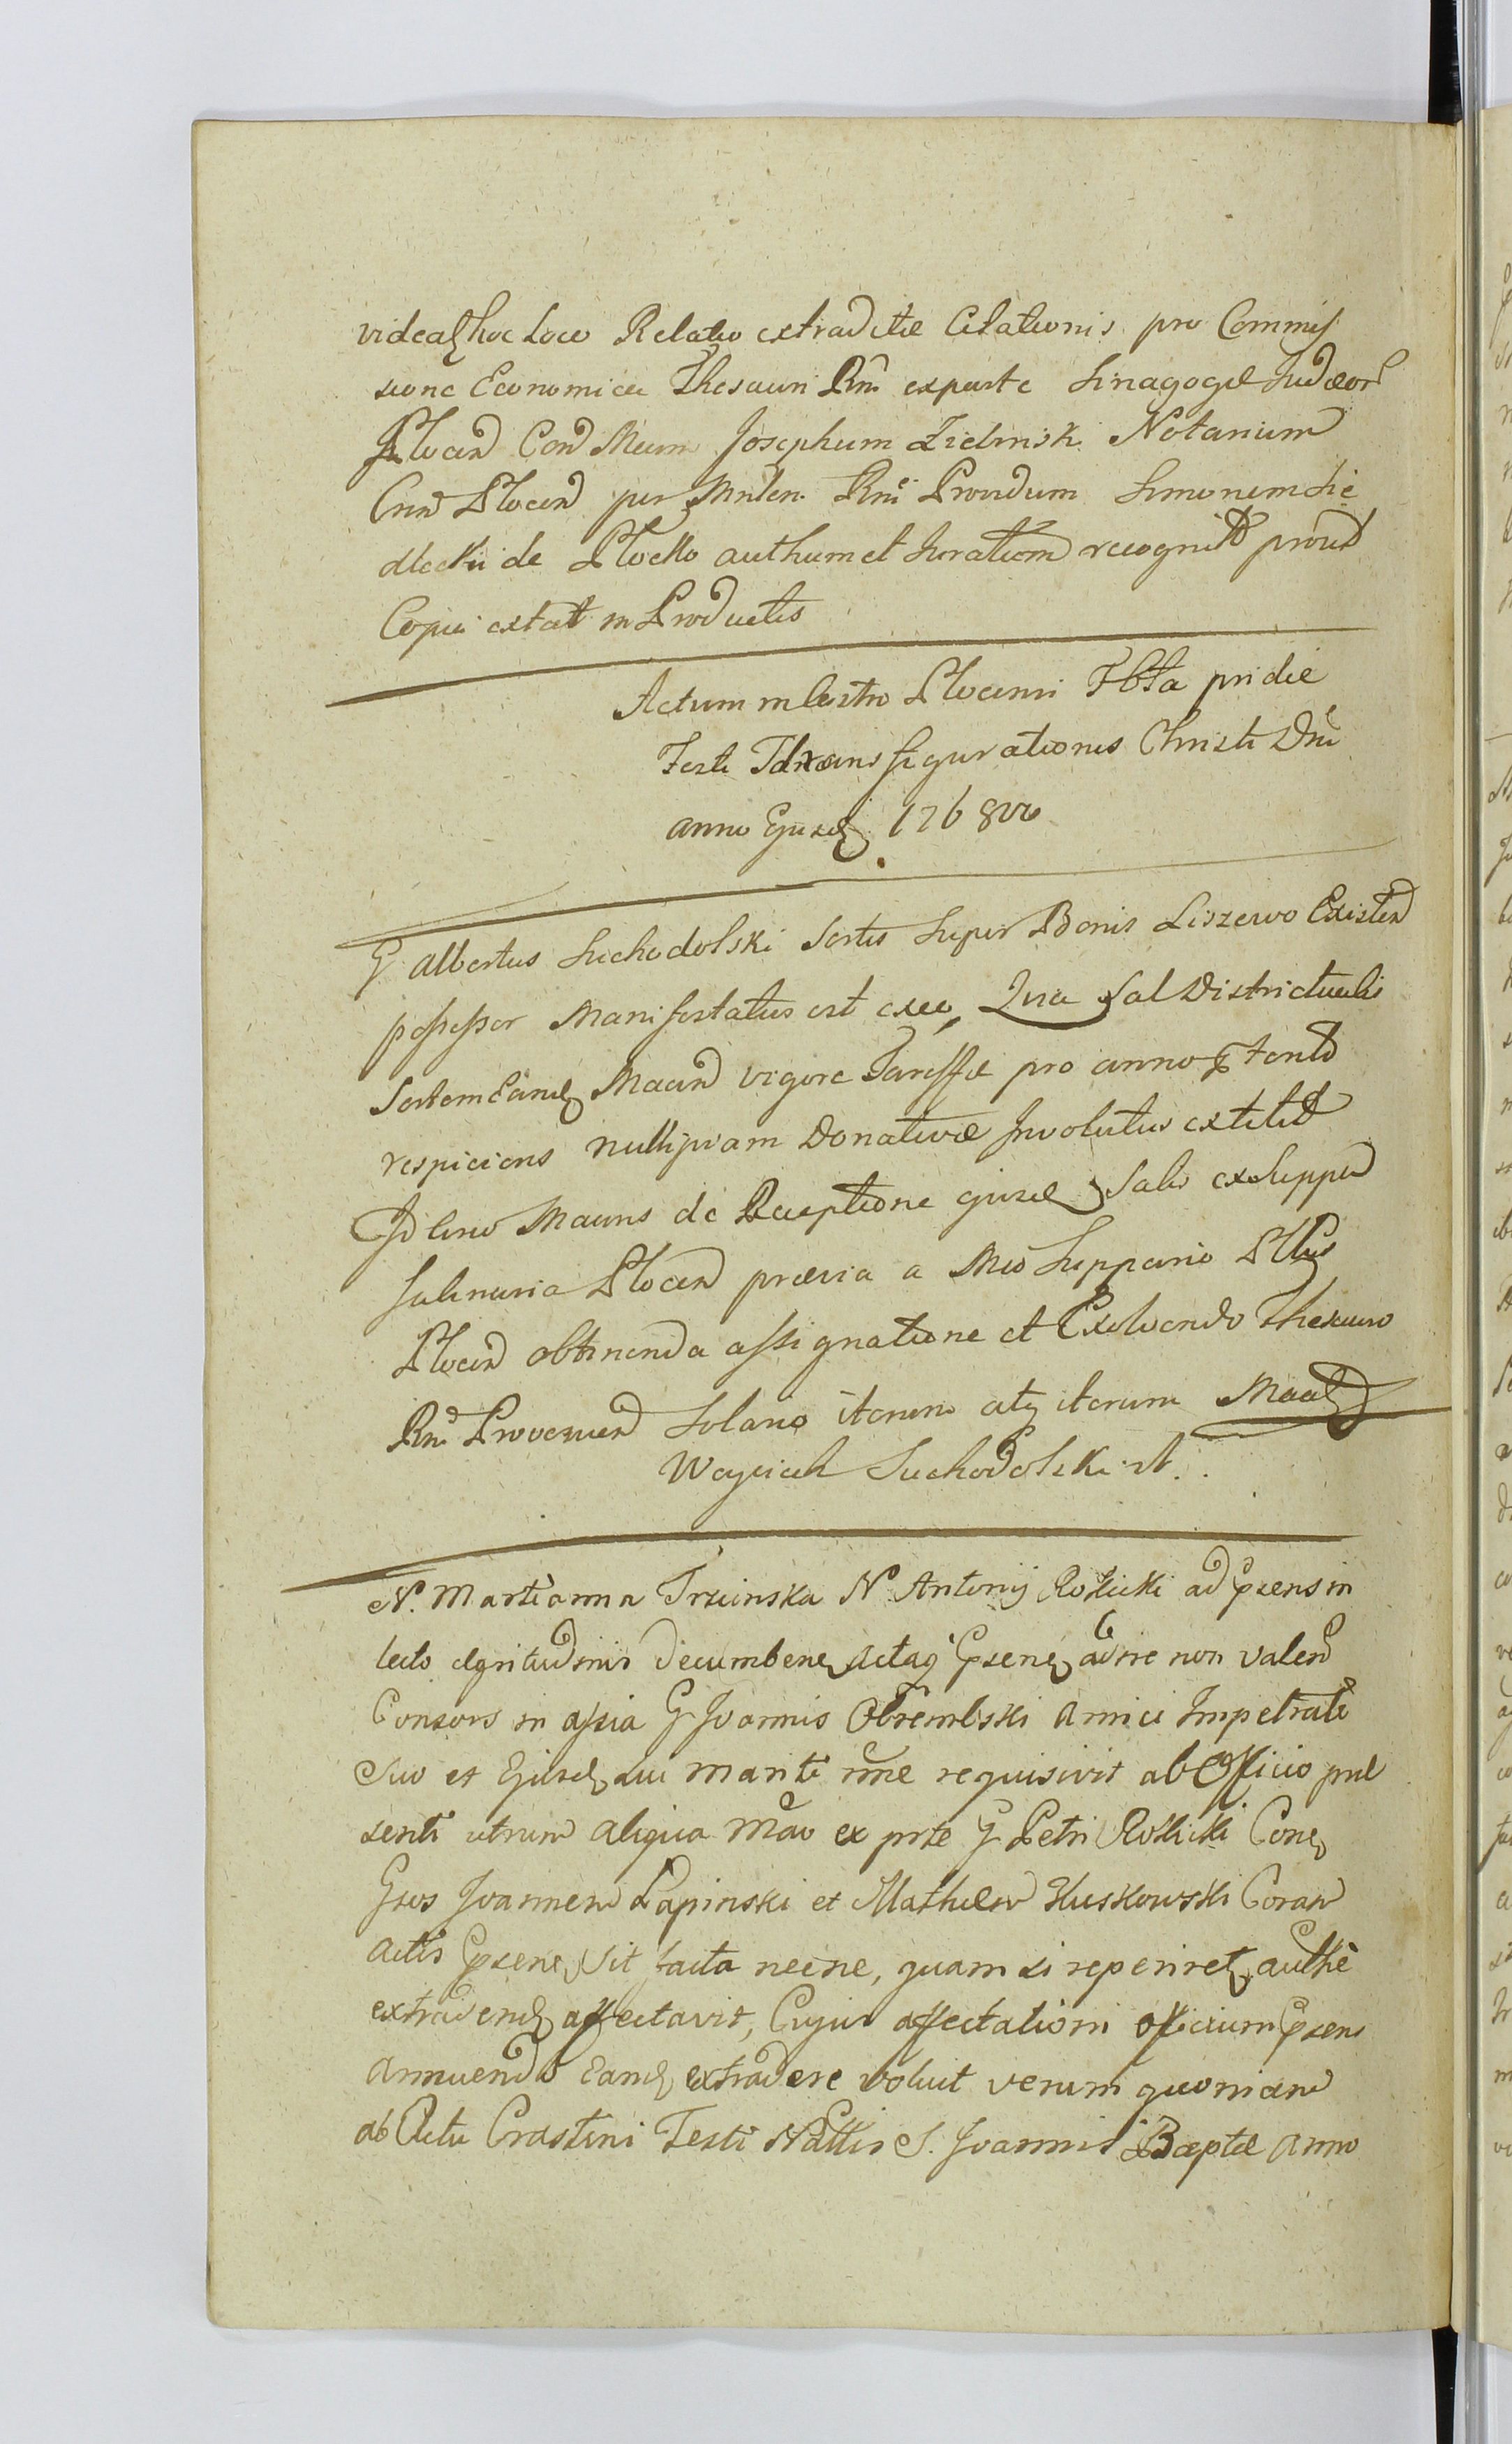 videatꝫ hoc Loco Relatio extraditæ Citationis pro Commis
sione Economica Thesauri Rni exparte Sinagogæ Judæorꝫ
Plocen Con Meum Josephum Zielinski Notarium
Cnn Plocen per Mnlem Rni Providum Simonem Sie
dlecki de Plocko authum et Juratum recognitt prout
Copia extat in Productis
Actum in Castro Plocensi Fbta pridie
Festi Transfigurationis Christi Dni
anno Ejusdꝫ 1768vo
G Albertus Suchodolski Sortis Super Bonis Liszewo Existen
possessor Manifestatus est exeo, Quia Sal Districtualis
Sortem Eandꝫ Maan vigore Tariffæ pro anno tento
respiciens nullipiam Donativæ Involutus extitit
Id circo Maans de Receptione ejusd Salis ex Suppa
Salinaria Plocen prævia a Mco Suppario
Plocen obtinenda assignatione et Exolvendo Thesauro
Rni Provenien Solario iterum atqꝫ iterum Maatꝫ
Woyciech Suchodolski
N. Martianna Trzcinska N Antonij Rokicki ad præns in
lecto ægritudinis decumbenꝫ Actaqꝫ Præsenꝫ adire non valen
Consors in assia G Joannis Obrembski Amici Impetrati
Suo et Ejusdꝫ sui mariti nne requisivit ab Officio præ
senti utrum aliqua mãō ex prte G Petri Rokicki Conꝫ
Gsos Joannem Lapinski et Mathæum Kuskowski Coram
actis Præsenꝫ sit facta necne, quam si reperiretꝫ authe
extradendꝫ affectavit, Cujus affectationi officium Præsens
annuendo Eandꝫ extradere voluit verum quoniam
ab Actu Crastini Festi Nattis S. Joannis Baptæ Anno